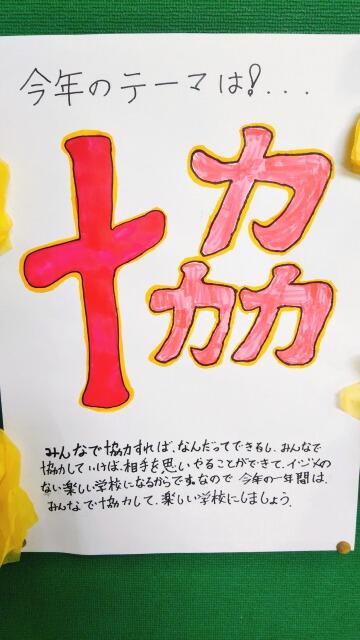 今年のテーマは!...
協
みんなで協力すれば、なんだってできるし、みんなで
協力していけば、相手を思いやることができて、イジメの
ない楽しい学校になるからです。なので 今年の一年間は、
みんなで協力して、楽しい学校にしましょう。